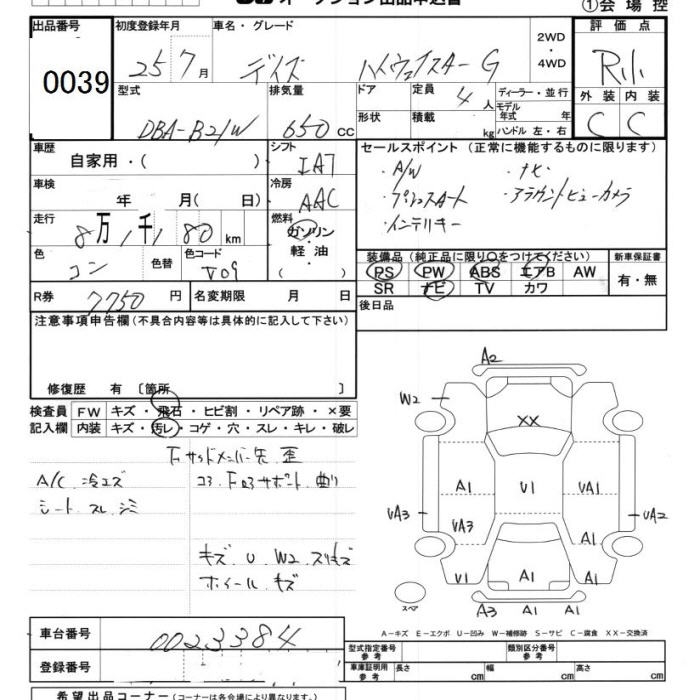 オークション出品申込書
①会場控
出品番号
0039
初度登録年月 車名・グレード
25 7月 デイズ ハイウェイスターG
2WD
・
4WD
評価点
R小
外装 内装
C C
型式 排気量 ドア 定員 ディーラー・並行
DBA-B21W 650cc 4人
形状 積載 kg
モデル年式 年
ハンドル 左・右
車歴 自家用・( )
シフト IAT
車検 年 月( 日)
冷房 AAC
走行 8万1千180km
燃料 ガソリン・軽油・( )
色 コン 色替 色コード V09
R券 7750円 名変期限 月 日
セールスポイント (正常に機能するものに限ります)
・A/W ・ナビ
・プッシュスタート ・アラウンドビューカメラ
・インテリキー
装備品(純正品に限り○をつけてください) 新車保証書
PS PW ABS エアB AW 有・無
SR ナビ TV カワ
後日品
注意事項申告欄(不具合内容等は具体的に記入して下さい)
修復歴 有 〔箇所 〕
検査員 FW キズ・飛石・ヒビ割・リペア跡・×要
記入欄 内装 キズ・汚レ・コゲ・穴・スレ・キレ・破レ
A/C 冷エズ
シート スレ シミ
キズ U W2 スリキズ
ホイール キズ
A2
W2
XX
A1 U1 UA1
UA3 UA3 UA2
A1
U1 A1 A1
スペア
A3 A1 A1
A-キズ E-エクボ U-凹み W-補修跡 S-サビ C-腐食 XX-交換済
車台番号 0023384
登録番号
型式指定番号 参考 類別区分番号 参考
車車証明用 参考 長さ cm 幅 cm 高さ cm
希望出品コーナー(コーナーは各会場により異なります)